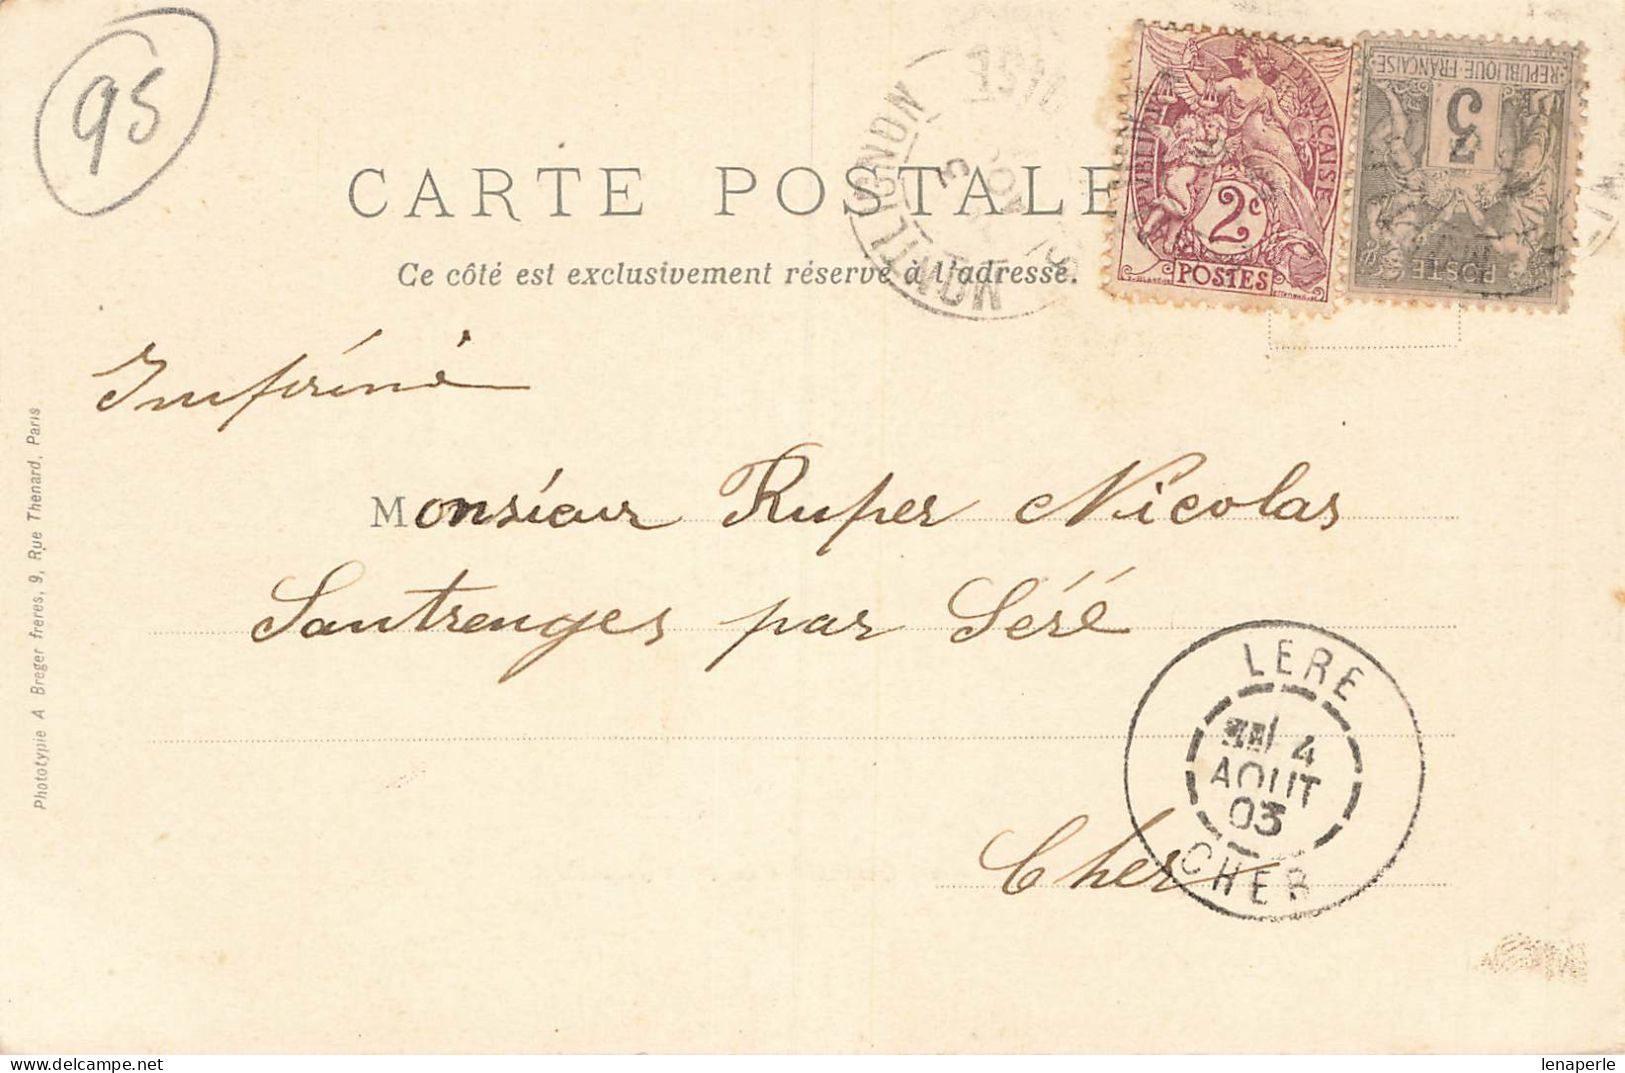 95
CARTE POSTALE
Ce côté est exclusivement réservé à l'adresse.
MONTLIGNON
REPUBLIQUE FRANÇAISE
2c
POSTES
REPUBLIQUE FRANÇAISE
3
POSTE
Imprimé
Monsieur Ruper Nicolas
Santrenges par Séré
Cher
LERE
4
AOUT
03
CHER
Phototypie A Breger freres, 9, Rue Thenard, Paris
lenaperle